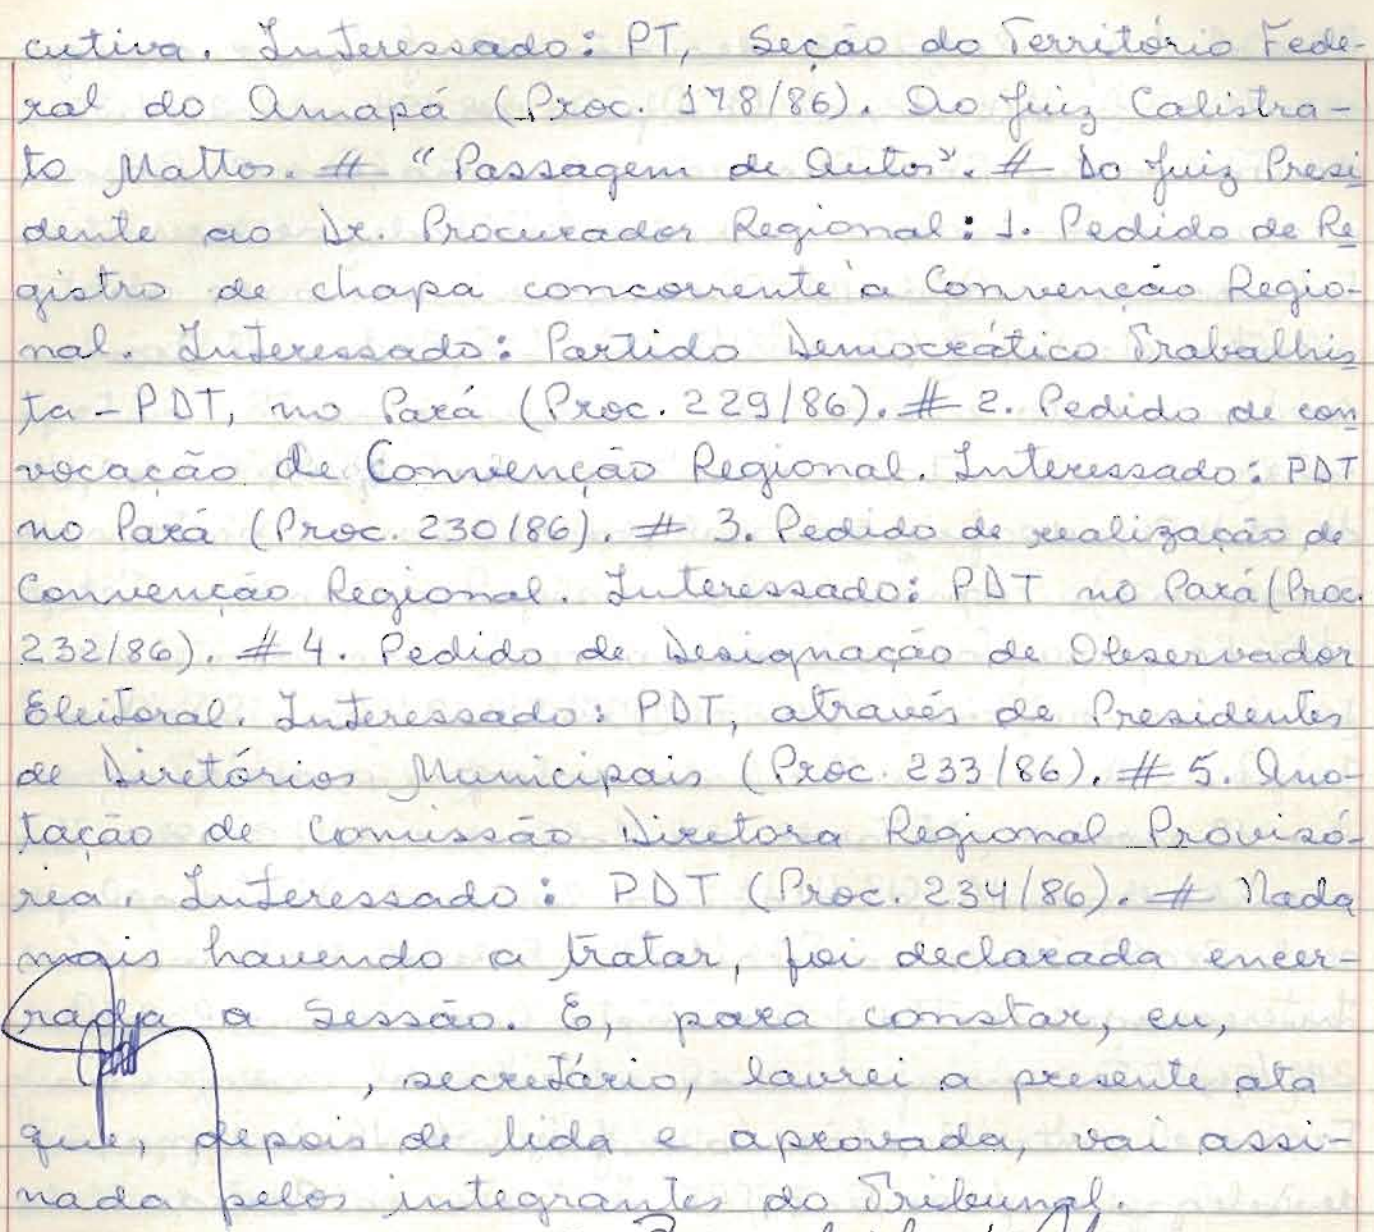 cutiva. Interessado: PT, Seção do Território Fede-
ral do Amapá (Proc. 178/86). Ao Juiz Calistra-
to Mattos. # "Passagem de Autos". # Do Juiz Presi
dente ao Dr. Procurador Regional: 1. Pedido de Re
gistro de chapa concorrente à Convenção Regio-
nal. Interessado: Partido Democrático Trabalhis
ta - PDT, no Pará (Proc. 229/86). # 2. Pedido de con
vocação de Convenção Regional. Interessado: PDT
no Pará (Proc. 230/86). # 3. Pedido de realização de
Convenção Regional. Interessado: PDT no Pará (Proc.
232/86). # 4. Pedido de Designação de Observador
Eleitoral. Interessado: PDT, através de Presidentes
de Diretórios Municipais (Proc. 233/86). # 5. Ano-
tação de Comissão Diretora Regional Provisó-
ria. Interessado: PDT (Proc. 234/86). # Nada
mais havendo a tratar, foi declarada encer-
rada a Sessão. E, para constar, eu,
, secretário, lavrei a presente ata
que, depois de lida e aprovada, vai assi-
nada pelos integrantes do Tribunal.